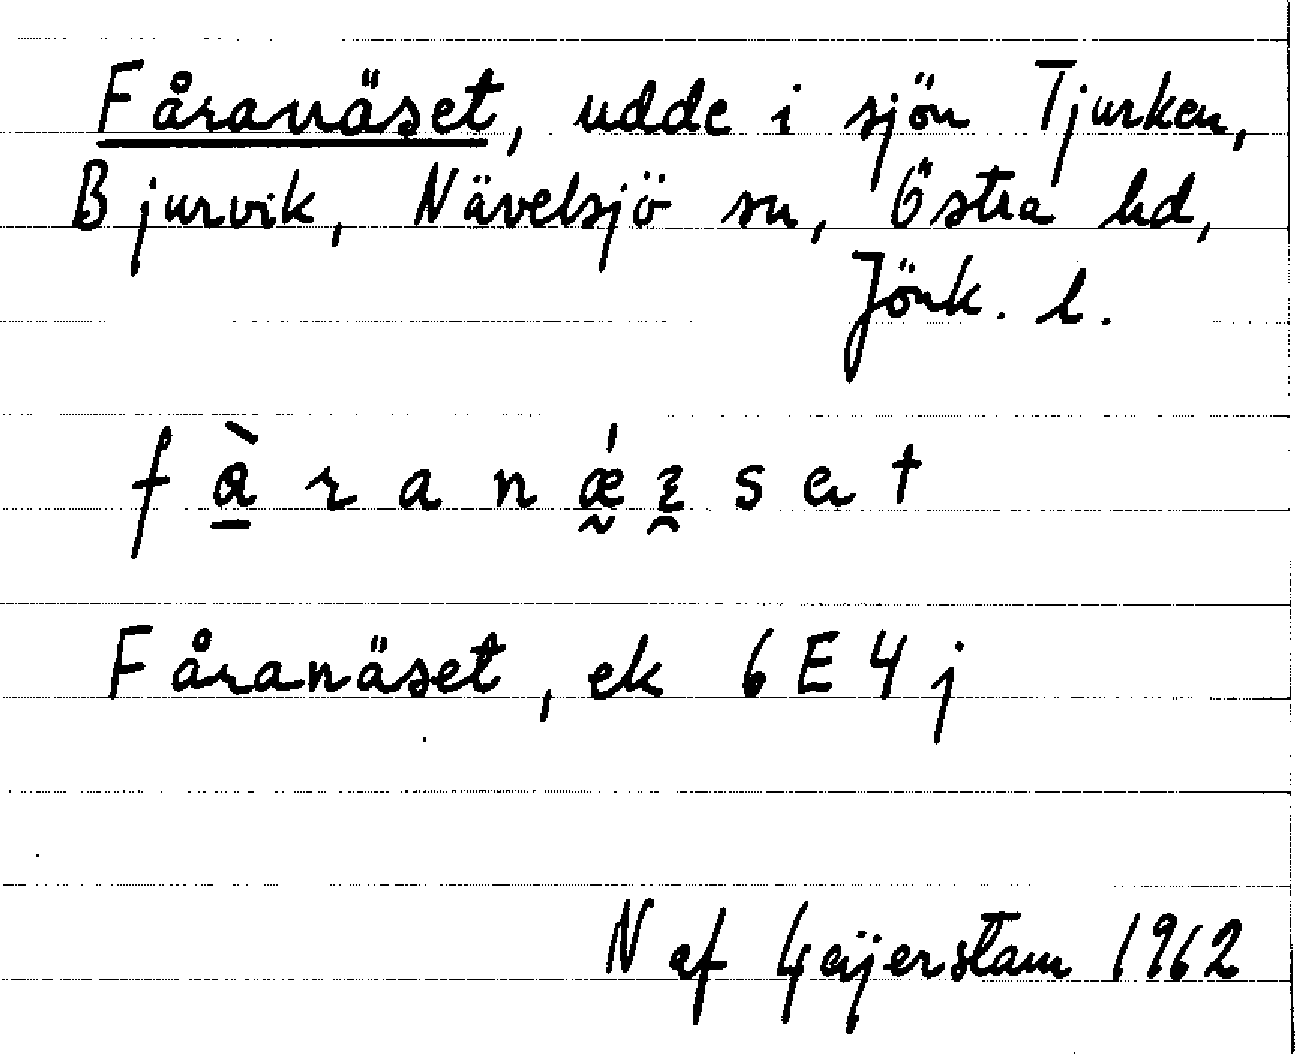 Fåranäset, udde i sjön Tjurken,
Bjurvik, Nävelsjö sn, Östra hd,
Jönk. l.
fà̱ranǽ̰ɛ̯sət
Fåranäset, ek 6E4j
N af Geijerstam 1962